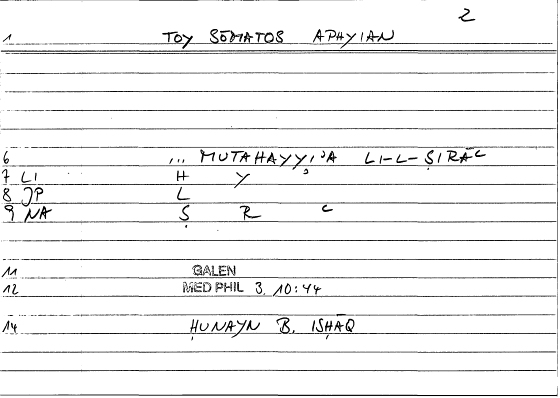 2
1 TOY SŌMATOS APAYIAN
6 ... MUTAHAYYIʾA LI-L-ṢIRĀʿ
7 LI H Y ʾ
8 JP L
9 NA Ṣ R ʿ
11 GALEN
12 MED PHIL 3, 10:44
14 ḤUNAYN B. ISḤĀQ